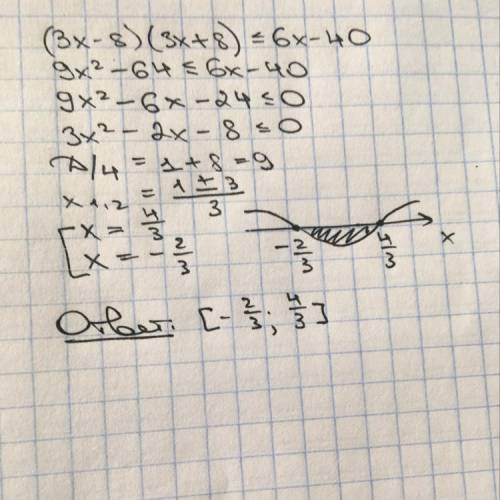 (3x-8)(3x+8) ≤ 6x-40
9x² - 64 ≤ 6x - 40
9x² - 6x - 24 ≤ 0
3x² - 2x - 8 ≤ 0
D/4 = 1 + 8 = 9
x 1,2 = (1 ± 3)/3
[ x = 4/3
[ x = - 2/3
-2/3 4/3 x
Ответ: [-2/3; 4/3]